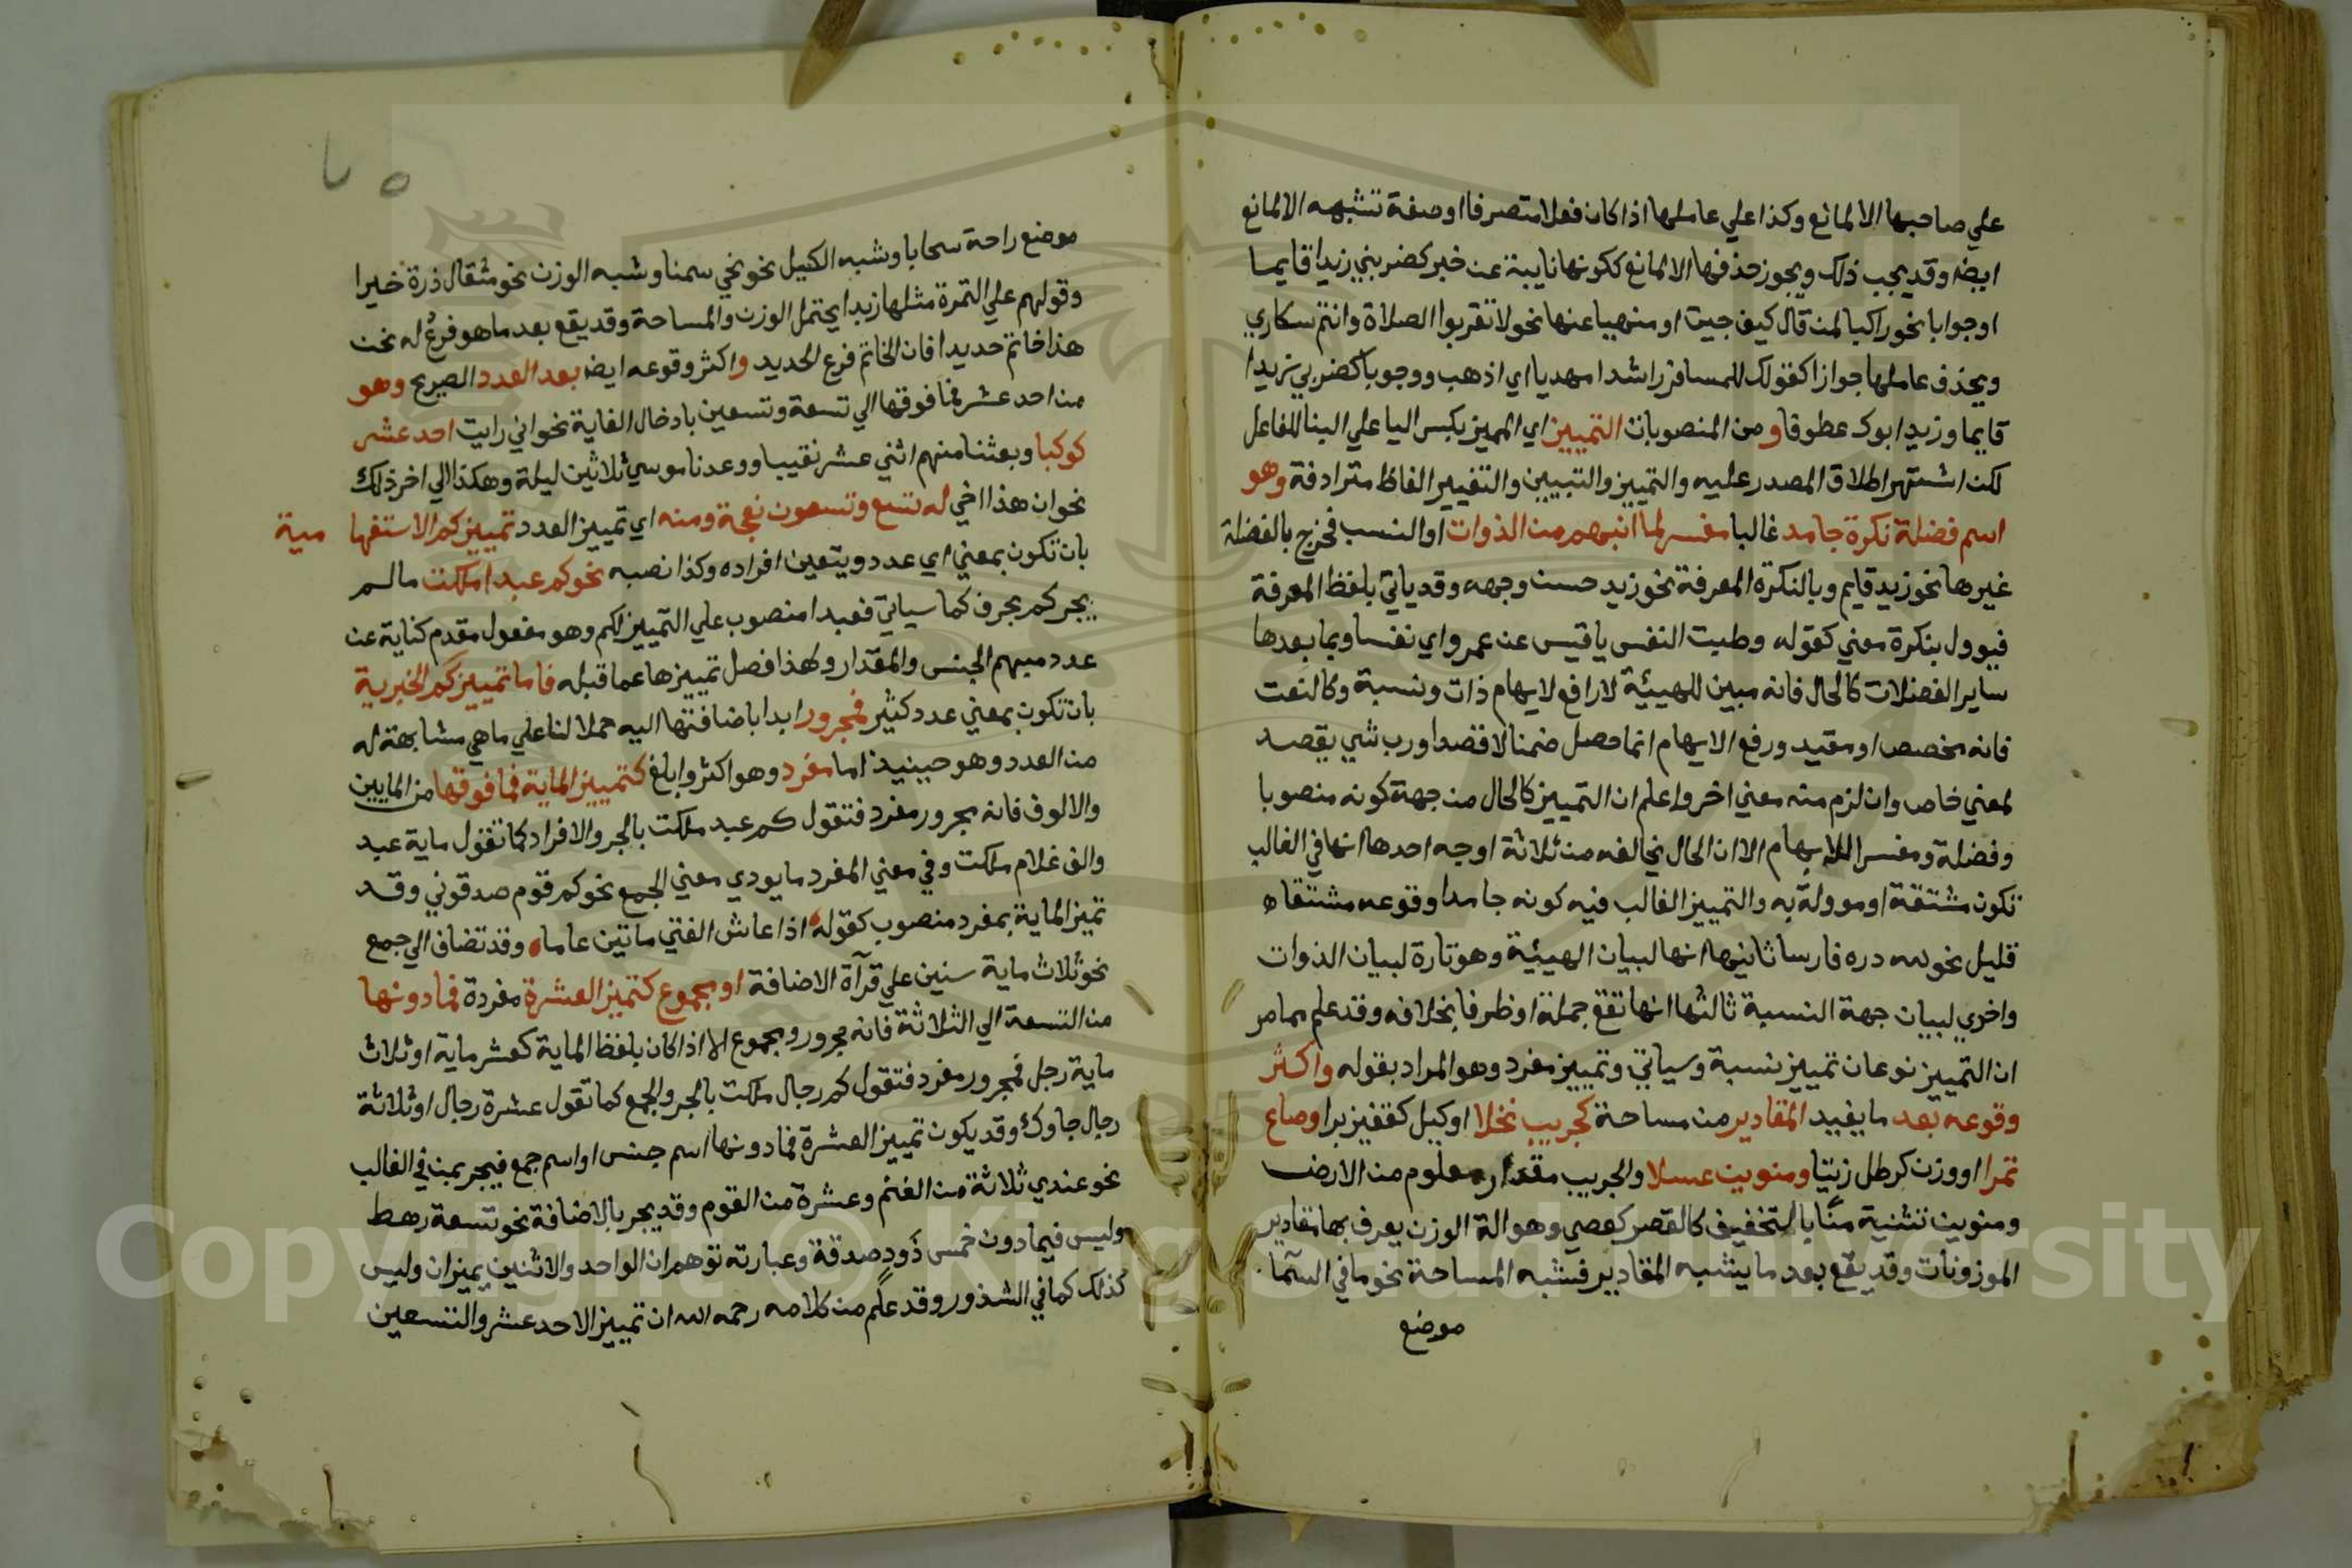 علي صاحبها الا لمانع وكذا علي عاملها اذا كان فعلا متصرفا او صفة تشبهه الا لمانع
ايضا وقد يجب ذلك ويجوز حذفها الا لمانع ككونها نايبة عن خبر كضربني زيدا قايما
او جوابا نحو راكبا لمن قال كيف جيت او منهيا عنها نحو لا تقربوا الصلاة وانتم سكاري
ويحذف عاملها جوازا كقولك للمسافر راشدا مهديا اي اذهب ووجوبا كضربي زيدا
قايما وزيد ابوك عطوفا ومن المنصوبات التمييز اي المميز بكسر اليا علي البنا للفاعل
لكن اشتهر اطلاق المصدر عليه والتمييز والتبيين والتفسير الفاظ مترادفة وهو
اسم فضلة نكرة جامد غالبا مفسر لما انبهم من الذوات او النسب فخرج بالفضلة
غيرها نحو زيد قايم وبالنكرة المعرفة نحو زيد حسن وجهه وقد ياتي بلفظ المعرفة
فيوول بنكرة معني كقوله وطبت النفس يا قيس عن عمرو اي نفسا وبما بعدها
ساير الفضلات كالحال فانه مبين للهيئة لا رافع لابهام ذات ونسبة وكالنعت
فانه مخصص او مقيد ورفع الابهام انما حصل ضمنا لا قصدا ورب شي يقصد
لمعني خاص وان لزم منه معني اخر واعلم ان التمييز كالحال من جهة كونه منصوبا
وفضلة ومفسرا للابهام الا ان الحال تخالفه من ثلاثة اوجه احدها انها في الغالب
تكون مشتقة او موولة به والتمييز الغالب فيه كونه جامدا وقوعه مشتقا
قليل نحو لله دره فارسا ثانيها انها لبيان الهيئية وهو تارة لبيان الذوات
واخري لبيان جهة النسبة ثالثها انها تقع جملة او ظرفا بخلافه وقد علم مما مر
ان التمييز نوعان تمييز نسبة وسياتي وتمييز مفرد وهو المراد بقوله واكثر
وقوعه بعد ما يفيد المقادير من مساحة كجريب نخلا او كيل كقفيز برا وصاع
تمرا او وزن كرطل زيتا ومنوين عسلا والجريب مقدار معلوم من الارض
ومنوين تثنية منًا بالتخفيف كالقصر كعصي وهو الة الوزن يعرف بها مقادير
الموزونات وقد يقع بعد ما يشبه المقادير فشبه المساحة نحو ما في السما
موضع
٧٥
موضع راحة سحابا وشبه الكيل نحو نحي سمنا وشبه الوزن نحو مثقال ذرة خيرا
وقولهم علي التمرة مثلها زبدا يحتمل الوزن والمساحة وقد يقع بعد ما هو فرع له نحو
هذا خاتم حديدا فان الخاتم فرع الحديد واكثر وقوعه ايضا بعد العدد الصريح وهو
من احد عشر فما فوقها الي تسعة وتسعين بادخال الغاية نحو اني رايت احد عشر
كوكبا وبعثنا منهم اثني عشر نقيبا ووعدنا موسي ثلاثين ليلة وهكذا الي اخر ذلك
نحو ان هذا اخي له تسع وتسعون نعجة ومنه اي تمييز العدد تمييز كم الاستفها مية
بان تكون بمعني اي عدد ويتعين افراده وكذا نصبه نحو كم عبدا ملكت ما لم
يجر كم بحرف كما سياتي فعبدا منصوب علي التمييز لكم وهو مفعول مقدم كناية عن
عدد مبهم الجنس والمقدار ولهذا فصل تمييزها عما قبله فاما تمييز كم الخبرية
بان تكون بمعني عدد كثير فمجرور ابدا باضافتها اليه حملا لنا علي ما هي مشابهة له
من العدد وهو حينيذ اما مفرد وهو اكثر وابلغ كتمييز الماية فما فوقها من المايين
والالوف فانه مجرور مفرد فتقول كم عبد ملكت بالجر والافراد كما تقول ماية عبد
والف غلام ملكت وفي معني المفرد ما يودي معني الجمع نحو كم قوم صدقوني وقد
تميز الماية بمفرد منصوب كقوله اذا عاش الفتي ماتين عاما وقد تضاف الي جمع
نحو ثلاث ماية سنين علي قرآة الاضافة او مجموع كتميز العشرة مفردة فما دونها
من التسعة الي الثلاثة فانه مجرور ومجموع الا اذا كان بلفظ الماية كعشر ماية او ثلاث
ماية رجل فمجرور مفرد فتقول كم رجال ملكت بالجر والجمع كما تقول عشرة رجال او ثلاثة
رجال جاوك وقد يكون تمييز العشرة فما دونها اسم جنس او اسم جمع فيجر بمن في الغالب
نحو عندي ثلاثة من الغنم وعشرة من القوم وقد يجر بالاضافة نحو تسعة رهط
وليس فيما دون خمس ذود صدقة وعبارته توهم ان الواحد والاثنين يميزان وليس
كذلك كما في الشذور وقد علم من كلامه رحمه الله ان تمييز الاحد عشر والتسعين
Copyright © King Saud University